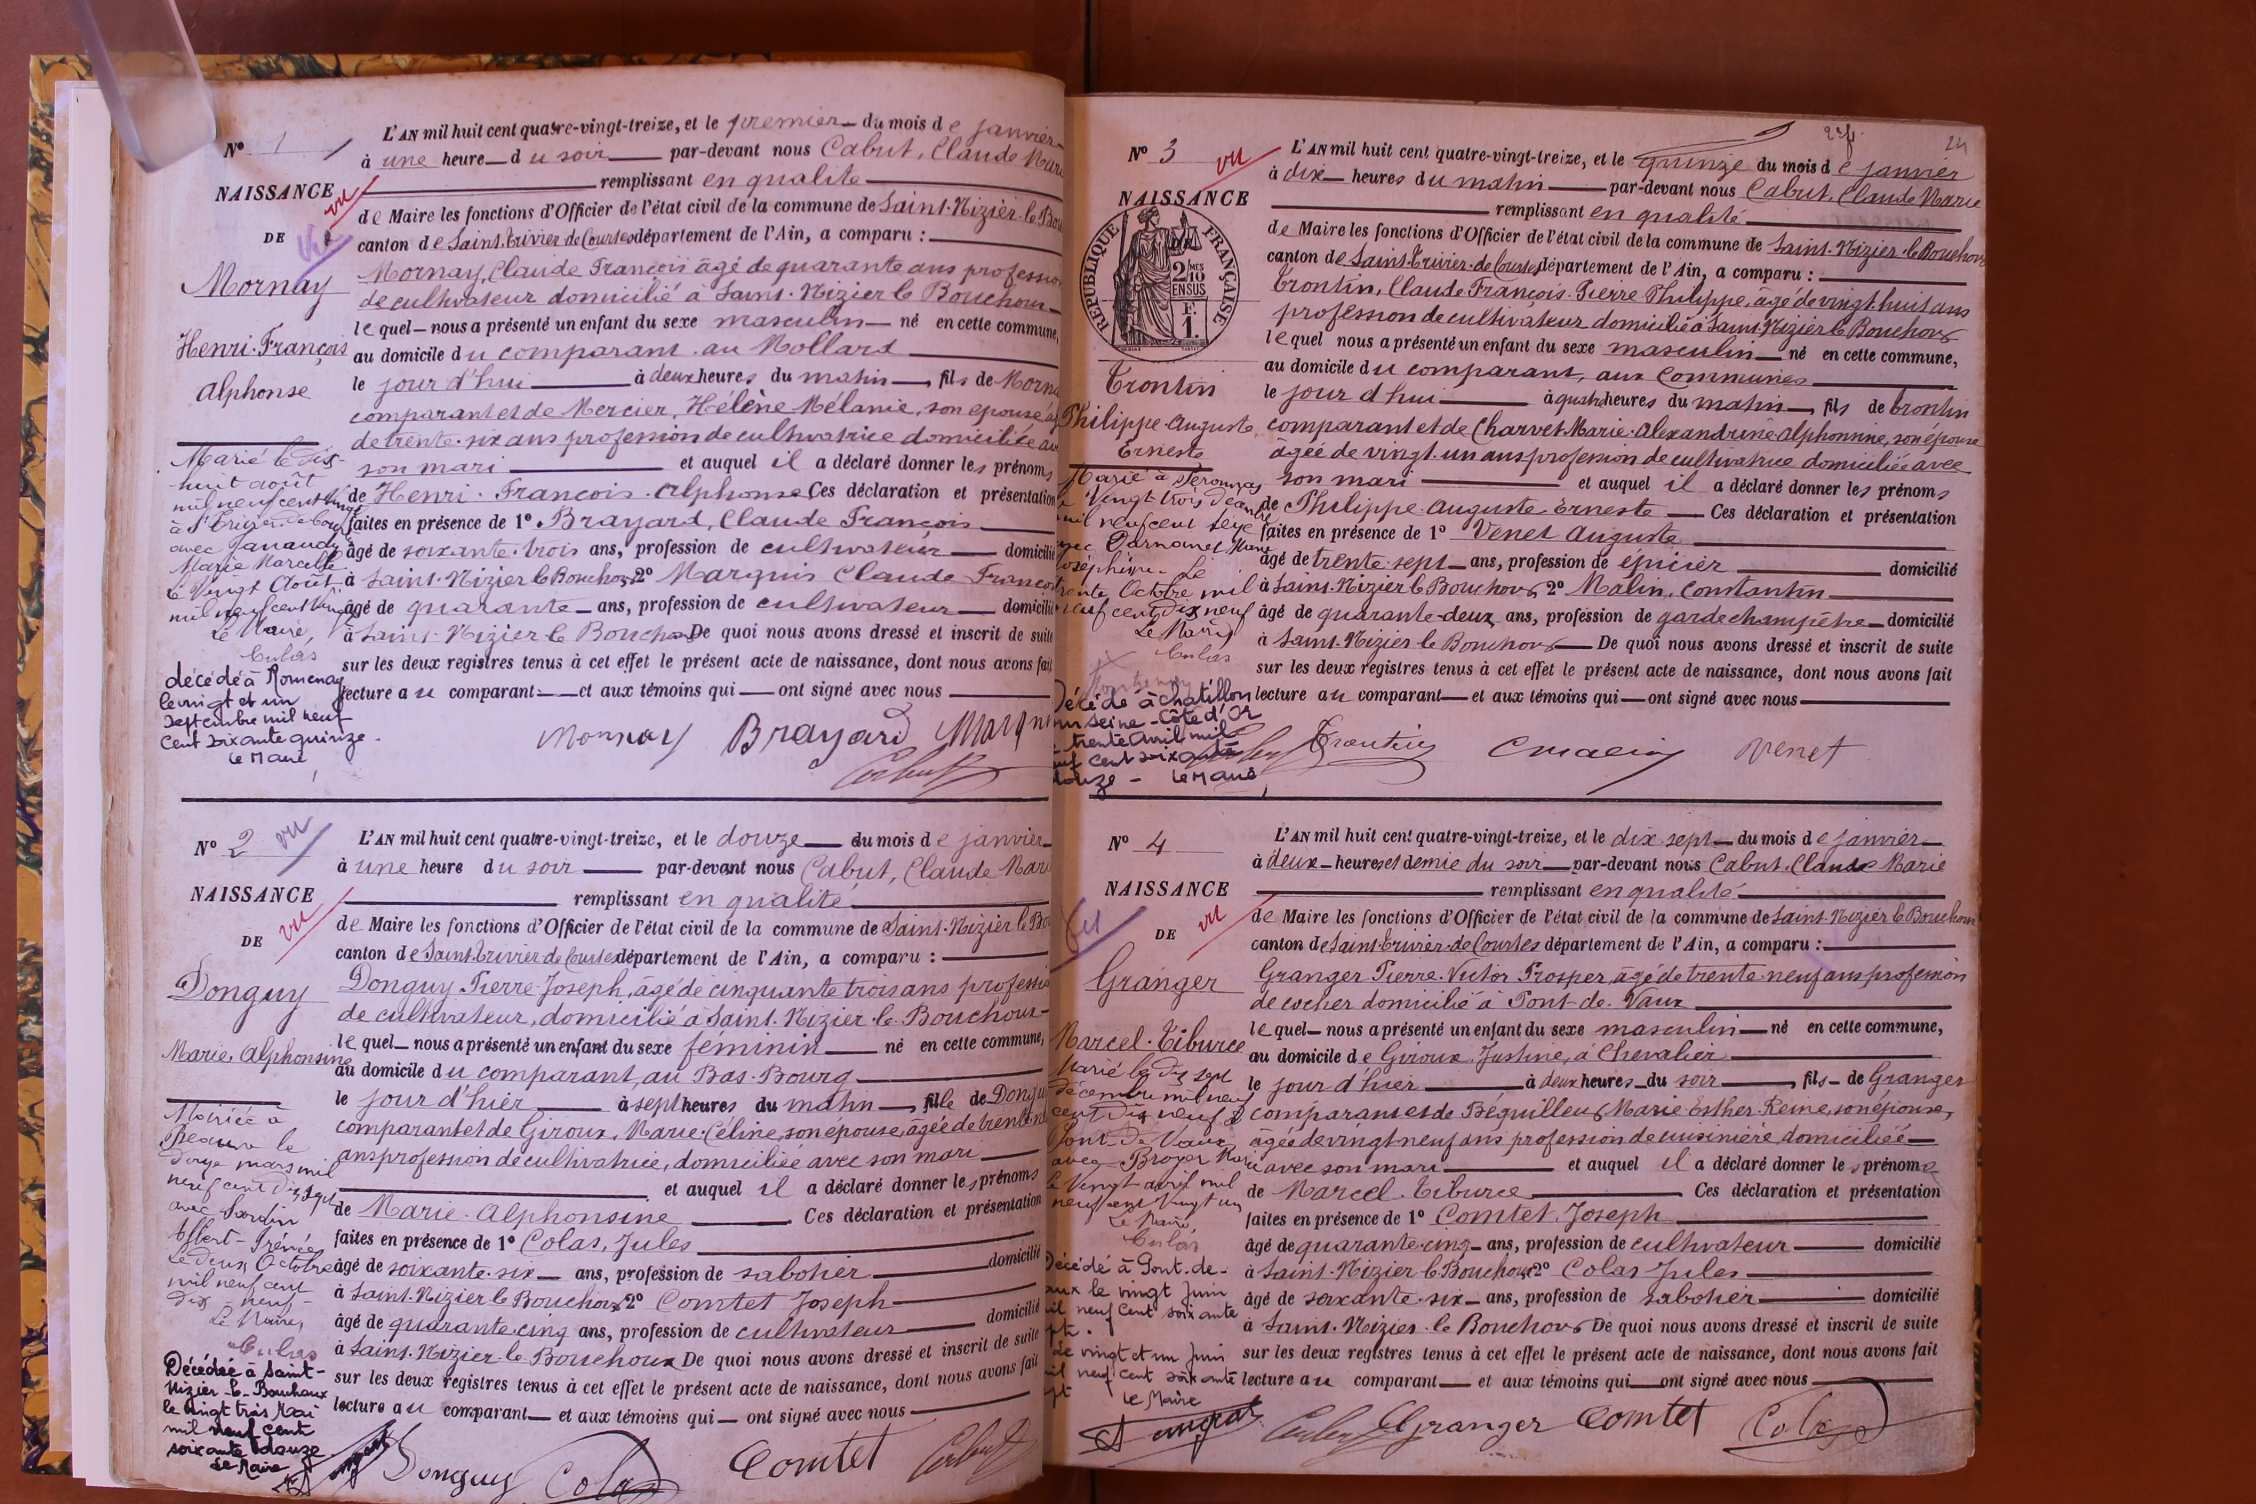 N° 1
NAISSANCE
DE
vu
Mornay
Henri François
Alphonse
Marié le dix-
huit août
mil neuf cent vingt
à St Trivier de Cour
avec Janaudy
Marie Marcelle
Le Vingt Août
mil neuf cent vingt
Le Maire,
décédé à Romenay
le vingt et un
septembre mil neuf
cent soixante quinze.
Le Maire
L'AN mil huit cent quatre-vingt-treize, et le premier du mois de janvier
à une heure du soir par-devant nous Cabut, Claude Marie
remplissant en qualité
de Maire les fonctions d'Officier de l'état civil de la commune de Saint-Nizier-le-Bou
canton de Saint-Trivier-de-Courtes département de l'Ain, a comparu :
Mornay, Claude François âgé de quarante ans profession
de cultivateur domicilié à Saint-Nizier le Bouchoux
lequel nous a présenté un enfant du sexe masculin né en cette commune,
au domicile du comparant au Mollard
le jour d'hui à deux heures du matin, fils de Mornay
comparant et de Mercier, Hélène Mélanie, son épouse âg
de trente-six ans profession de cultivatrice domiciliée av
son mari et auquel il a déclaré donner les prénoms
de Henri-François-Alphonse Ces déclaration et présentation
faites en présence de 1° Brayard, Claude François
âgé de soixante-trois ans, profession de cultivateur domicilié
à Saint-Nizier le Bouchoux 2° Marguis Claude François
âgé de quarante ans, profession de cultivateur domicilié
à Saint-Nizier le Bouchoux De quoi nous avons dressé et inscrit de suite
sur les deux registres tenus à cet effet le présent acte de naissance, dont nous avons fait
lecture au comparant et aux témoins qui ont signé avec nous
Mornay Brayard
N° 2 vu
NAISSANCE
DE
vu
Donguy
Marie Alphonsine
Mariée à
le
douze mars mil
neuf cent dix sept
avec
Albert-Irénée
Le deux Octobre
mil neuf cent
dix-neuf-
Le Maire,
Décédée à Saint-
Nizier-le-Bouchoux
le vingt trois Mai
mil neuf cent
soixante douze
Le Maire
L'AN mil huit cent quatre-vingt-treize, et le douze du mois de janvier
à une heure du soir par-devant nous Cabut, Claude Marie
remplissant en qualité
de Maire les fonctions d'Officier de l'état civil de la commune de Saint-Nizier le Bou
canton de Saint-Trivier-de-Courtes département de l'Ain, a comparu :
Donguy Pierre-Joseph, âgé de cinquante trois ans professio
de cultivateur, domicilié à Saint-Nizier-le-Bouchoux
lequel nous a présenté un enfant du sexe féminin né en cette commune,
au domicile du comparant, au Bas-Bourg
le jour d'hier à sept heures du matin, fille de Donguy
comparant et de Giroux, Marie-Céline, son épouse, âgée de trente
ans profession de cultivatrice, domiciliée avec son mari
et auquel il a déclaré donner les prénoms
de Marie-Alphonsine Ces déclaration et présentation
faites en présence de 1° Colas, Jules
âgé de soixante-six ans, profession de sabotier domicilié
à Saint-Nizier le Bouchoux 2° Comtet Joseph
âgé de quarante-cinq ans, profession de cultivateur domicilié
à Saint-Nizier-le-Bouchoux De quoi nous avons dressé et inscrit de suite
sur les deux registres tenus à cet effet le présent acte de naissance, dont nous avons fait
lecture au comparant et aux témoins qui ont signé avec nous
Donguy Colas Comtet Cabut
24
N° 3
vu
NAISSANCE
DE
RÉPUBLIQUE FRANÇAISE
2 MES
10
EN SUS
F.
1.
Trontin
Philippe Auguste
Erneste
Marié à
Vingt-trois décembre
mil neuf cent seize
Marie
Joséphine. Le
trente Octobre mil
neuf cent dix neuf
Le Maire
Décédé à Chatillon
sur seine - Côte d'Or
trente avril mil
neuf cent soixante
douze - Le Maire
L'AN mil huit cent quatre-vingt-treize, et le quinze du mois de janvier
à dix heures du matin par-devant nous Cabut, Claude Marie
remplissant en qualité
de Maire les fonctions d'Officier de l'état civil de la commune de Saint-Nizier-le-Bouchoux
canton de Saint-Trivier-de-Courtes département de l'Ain, a comparu :
Trontin, Claude François-Pierre Philippe, âgé de vingt-huit ans
profession de cultivateur domicilié à Saint-Nizier le Bouchoux
lequel nous a présenté un enfant du sexe masculin né en cette commune,
au domicile du comparant, aux Communes
le jour d'hui à quatre heures du matin, fils de Trontin
comparant et de Charvet Marie-Alexandrine-Alphonsine, son épouse
âgée de vingt-un ans profession de cultivatrice domiciliée avec
son mari et auquel il a déclaré donner les prénoms
de Philippe Auguste Erneste Ces déclaration et présentation
faites en présence de 1° Venet Auguste
âgé de trente sept ans, profession de épicier domicilié
à Saint-Nizier le Bouchoux 2° Malin, Constantin
âgé de quarante-deux ans, profession de garde champêtre domicilié
à Saint-Nizier le Bouchoux De quoi nous avons dressé et inscrit de suite
sur les deux registres tenus à cet effet le présent acte de naissance, dont nous avons fait
lecture au comparant et aux témoins qui ont signé avec nous
Trontin Cmalin Venet
N° 4
NAISSANCE
DE
vu
Granger
Marcel-Tiburce
Marié le dix sept
décembre mil neuf
cent dix neuf à
Pont-de-Vaux
avec Marie
le Vingt avril mil
neuf cent Vingt un
Le Maire,
Décédé à Pont-de-
aux le vingt Juin
mil neuf cent soixante
Le vingt et un Juin
mil neuf cent soixante
Le Maire
L'AN mil huit cent quatre-vingt-treize, et le dix-sept du mois de janvier
à deux heures et demie du soir par-devant nous Cabut, Claude Marie
remplissant en qualité
de Maire les fonctions d'Officier de l'état civil de la commune de Saint-Nizier le Bouchoux
canton de Saint-Trivier-de-Courtes département de l'Ain, a comparu :
Granger Pierre-Victor Prosper, âgé de trente-neuf ans profession
de cocher domicilié à Pont-de-Vaux
lequel nous a présenté un enfant du sexe masculin né en cette commune,
au domicile de Giroux, Justine, à Chevalier
le jour d'hier à deux heures du soir, fils de Granger
comparant et de Béguilleux, Marie Esther-Reine, son épouse,
âgée de vingt-neuf ans profession de cuisinière domiciliée
avec son mari et auquel il a déclaré donner les prénoms
de Marcel-Tiburce Ces déclaration et présentation
faites en présence de 1° Comtet, Joseph
âgé de quarante-cinq ans, profession de cultivateur domicilié
à Saint-Nizier le Bouchoux 2° Colas Jules
âgé de soixante-six ans, profession de sabotier domicilié
à Saint-Nizier-le-Bouchoux De quoi nous avons dressé et inscrit de suite
sur les deux registres tenus à cet effet le présent acte de naissance, dont nous avons fait
lecture au comparant et aux témoins qui ont signé avec nous
Granger Comtet Colas